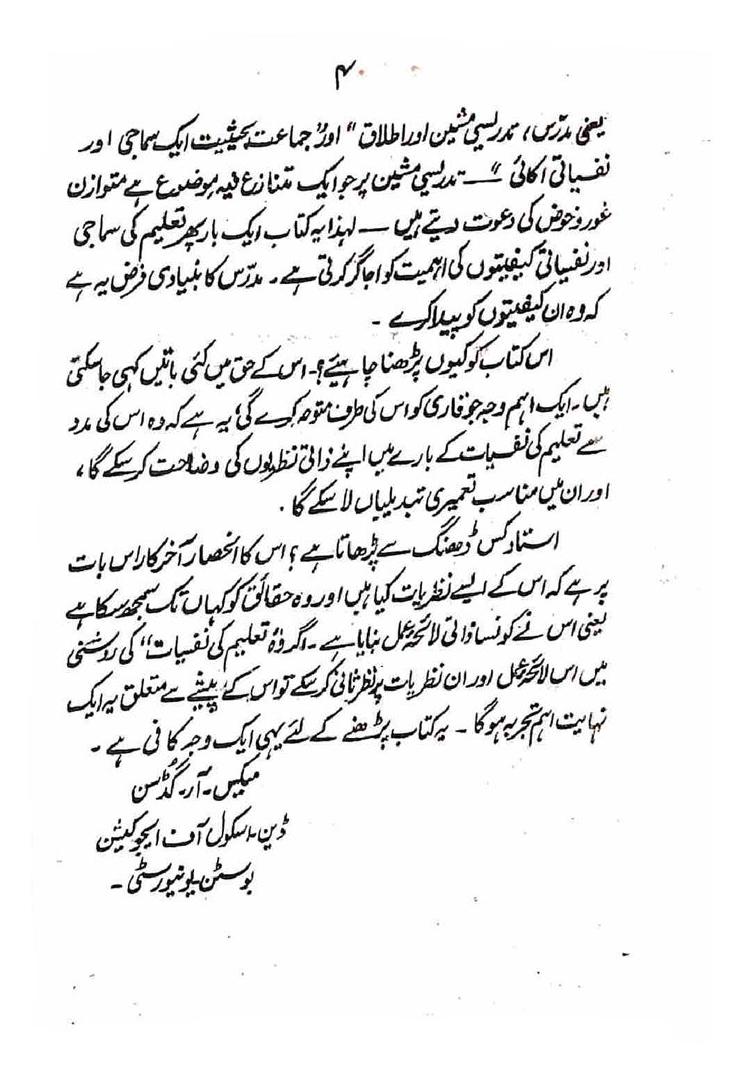 ۴
یعنی مدرّس، تدریسی مشین اور اطلاق" اور "جماعت بحیثیت ایک سماجی اور
نفسیاتی اکائی" — تدریسی مشین پر جو ایک متنازع فیہ موضوع ہے متوازن
غور و خوض کی دعوت دیتے ہیں — لہذا یہ کتاب ایک بار پھر تعلیم کی سماجی
اور نفسیاتی کیفیتوں کی اہمیت کو اجاگر کرتی ہے۔ مدرّس کا بنیادی فرض یہ ہے
کہ وہ ان کیفیتوں کو پیدا کرے۔
اس کتاب کو کیوں پڑھنا چاہیئے؟۔ اس کے حق میں کئی باتیں کہی جاسکتی
ہیں۔ ایک اہم وجہ جو قاری کو اس کی طرف متوجہ کرے گی، یہ ہے کہ وہ اس کی مدد
سے تعلیم کی نفسیات کے بارے میں اپنے ذاتی نظریوں کی وضاحت کرسکے گا،
اور ان میں مناسب تعمیری تبدیلیاں لا سکے گا۔
استاد کس ڈھنگ سے پڑھاتا ہے؟ اس کا انحصار آخر کار اس بات
پر ہے کہ اس کے ایسے نظریات کیا ہیں اور وہ حقائق کو کہاں تک سمجھ سکا ہے
یعنی اس نے کونسا ذاتی لائحۂ عمل بنایا ہے۔ اگر وہ "تعلیم کی نفسیات" کی روشنی
میں اس لائحۂ عمل اور ان نظریات پر نظر ثانی کرسکے تو اس کے پیشے سے متعلق یہ ایک
نہایت اہم تجربہ ہوگا۔ یہ کتاب پڑھنے کے لئے یہی ایک وجہ کافی ہے۔
میکس۔ آر۔ گڈسن
ڈین۔ اسکول آف ایجوکیشن
بوسٹن یونیورسٹی۔